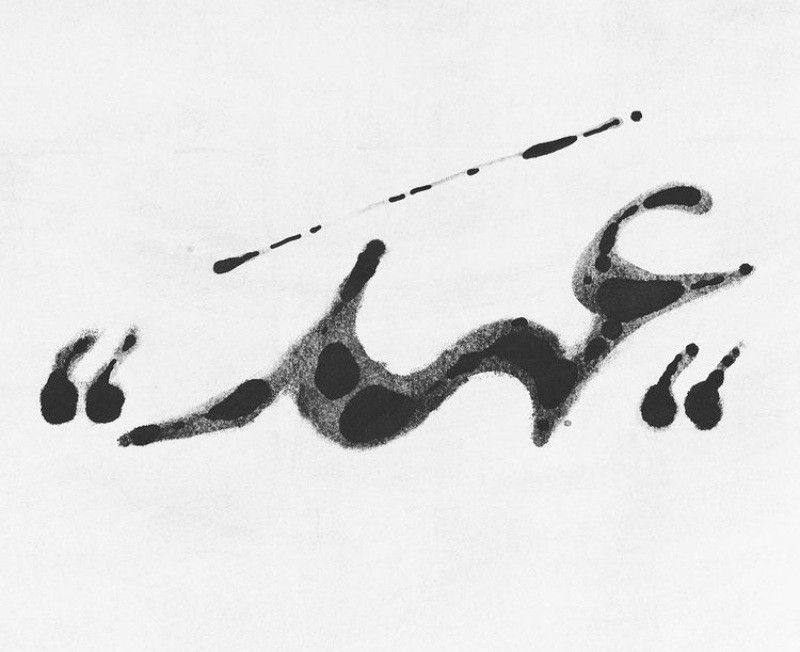 “عهد“